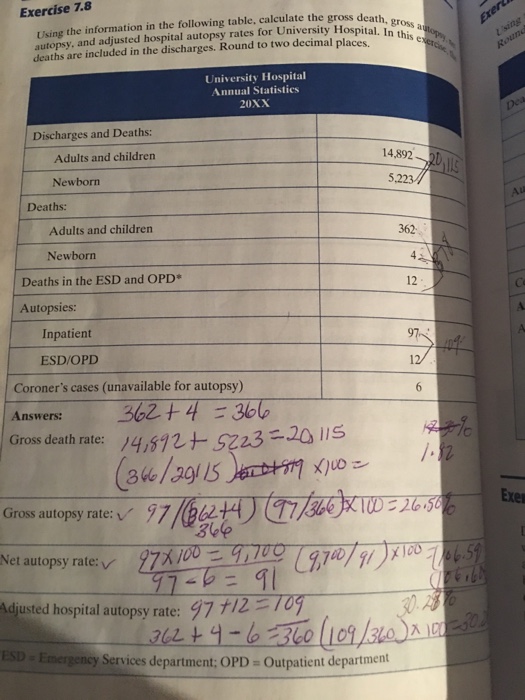 Exercise 7.8
Using the information in the following table, calculate the gross death, gross autopsy, net
autopsy, and adjusted hospital autopsy rates for University Hospital. In this exercise, the
deaths are included in the discharges. Round to two decimal places.
University Hospital
Annual Statistics
20XX
Discharges and Deaths:
Adults and children 14,892
20,115
Newborn 5,223
Deaths:
Adults and children 362
Newborn 4
Deaths in the ESD and OPD* 12
Autopsies:
Inpatient 97
109
ESD/OPD 12
Coroner's cases (unavailable for autopsy) 6
Answers: 362 + 4 = 366
Gross death rate: 14,892 + 5223 = 20,115
1.82 %
(366/20115) x100 =
Gross autopsy rate: 97/(362+4) (97/366) x 100 = 26.50%
366
Net autopsy rate: 97x100 = 9,700 (9,700/91) x100 = 106.59
97-6 = 91
Adjusted hospital autopsy rate: 97 +12 = 109 30.28%
362 + 4 - 6 = 360 (109/360) x 100 =
ESD = Emergency Services department; OPD = Outpatient department
Using
Round